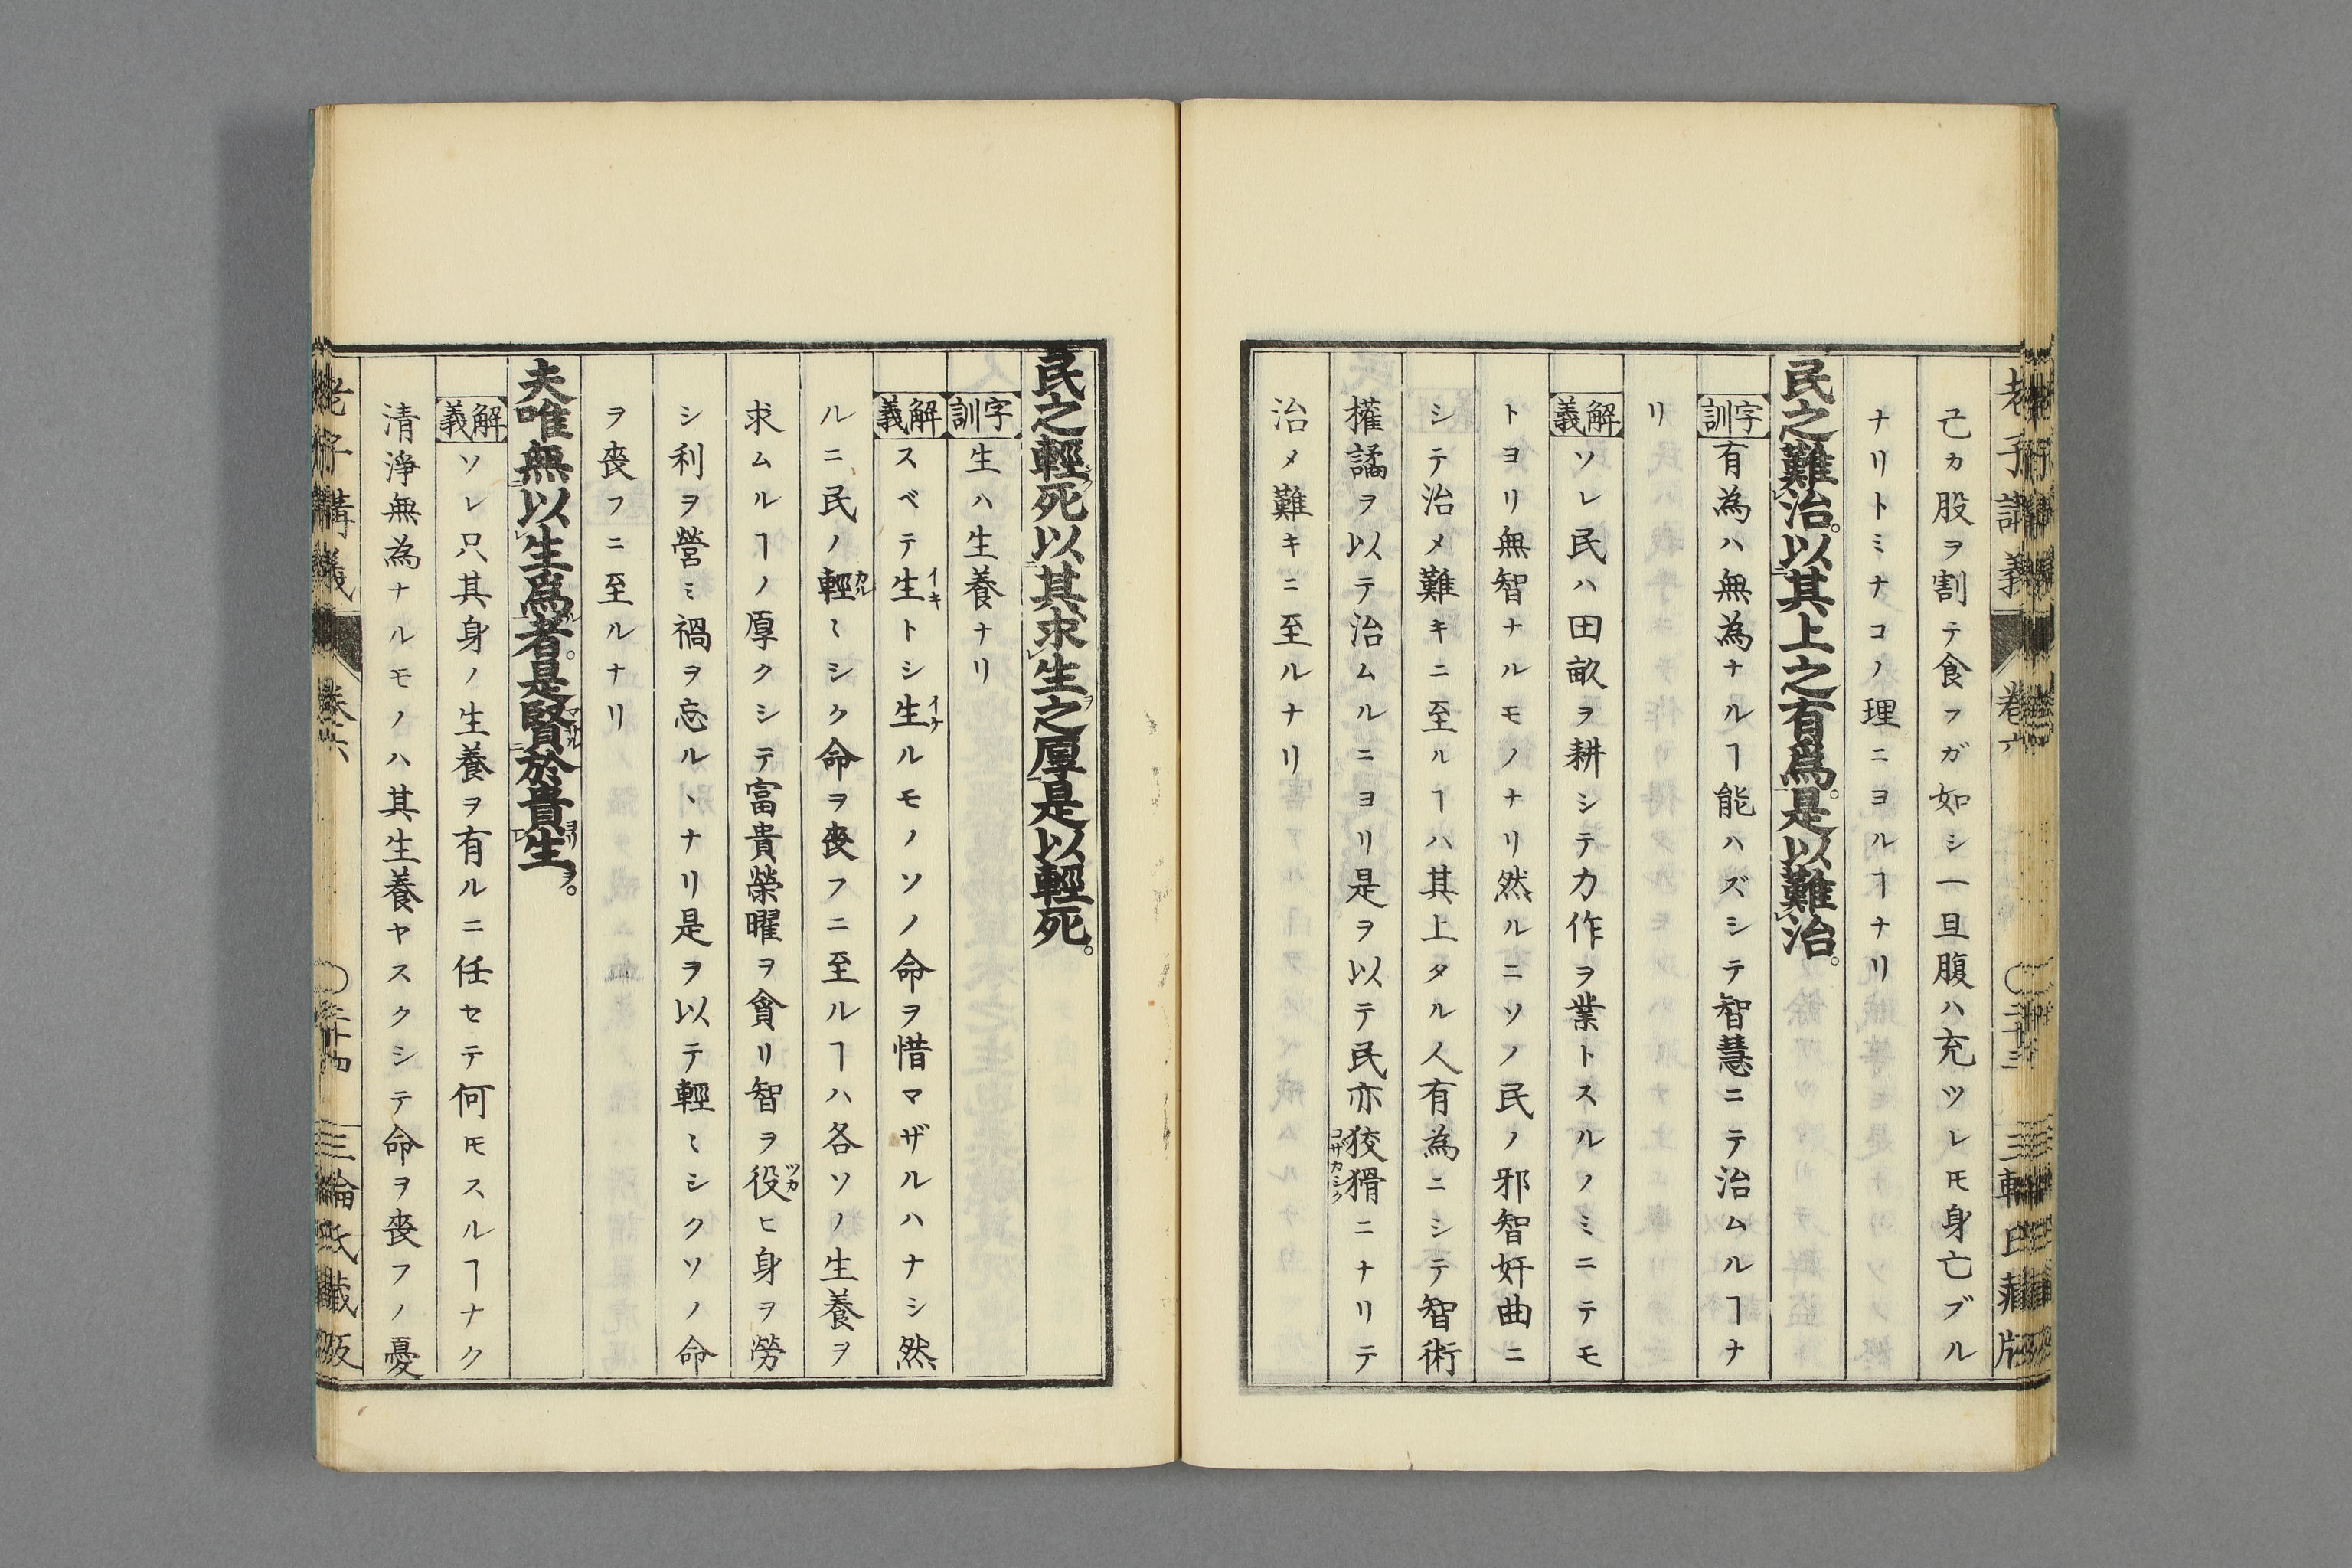 老子講義 卷六 〇二十三 三輪氏藏版
己カ股ヲ割テ食フガ如シ一旦腹ハ充ツレㇳモ身亡ブル
ナリトミナコノ理ニヨルヿナリ
民之難治。以其上之有爲。是以難治。
字訓 有為ハ無為ナルヿ能ハズシテ智慧ニテ治ムルヿナ
リ
解義 ソレ民ハ田畝ヲ耕シテ力作ヲ業トスルノミニテモ
トヨリ無智ナルモノナリ然ルニソノ民ノ邪智奸曲ニ
シテ治メ難キニ至ルヿハ其上タル人有為ニシテ智術
權譎ヲ以テ治ムルニヨリ是ヲ以テ民亦狡猾コザカシクニナリテ
治メ難キニ至ルナリ
民之輕死以其求生之厚是以輕死。
字訓 生ハ生養ナリ
解義 スベテ生イキトシ生イケルモノソノ命ヲ惜マザルハナシ然
ルニ民ノ輕カル〻シク命ヲ喪フニ至ルヿハ各ソノ生養ヲ
求ムルヿノ厚クシテ富貴榮曜ヲ貪リ智ヲ役ツカヒ身ヲ勞
シ利ヲ營ミ禍ヲ忘ルヽナリ是ヲ以テ輕〻シクソノ命
ヲ喪フニ至ルナリ
夫唯無以生爲者。是賢マサル於貴生ヨリヲ。
解義 ソレ只其身ノ生養ヲ有ルニ任セテ何モスルヿナク
清淨無為ナルモノハ其生養ヤスクシテ命ヲ喪フノ憂
老子講義 卷六 〇二十四 三輪氏藏版